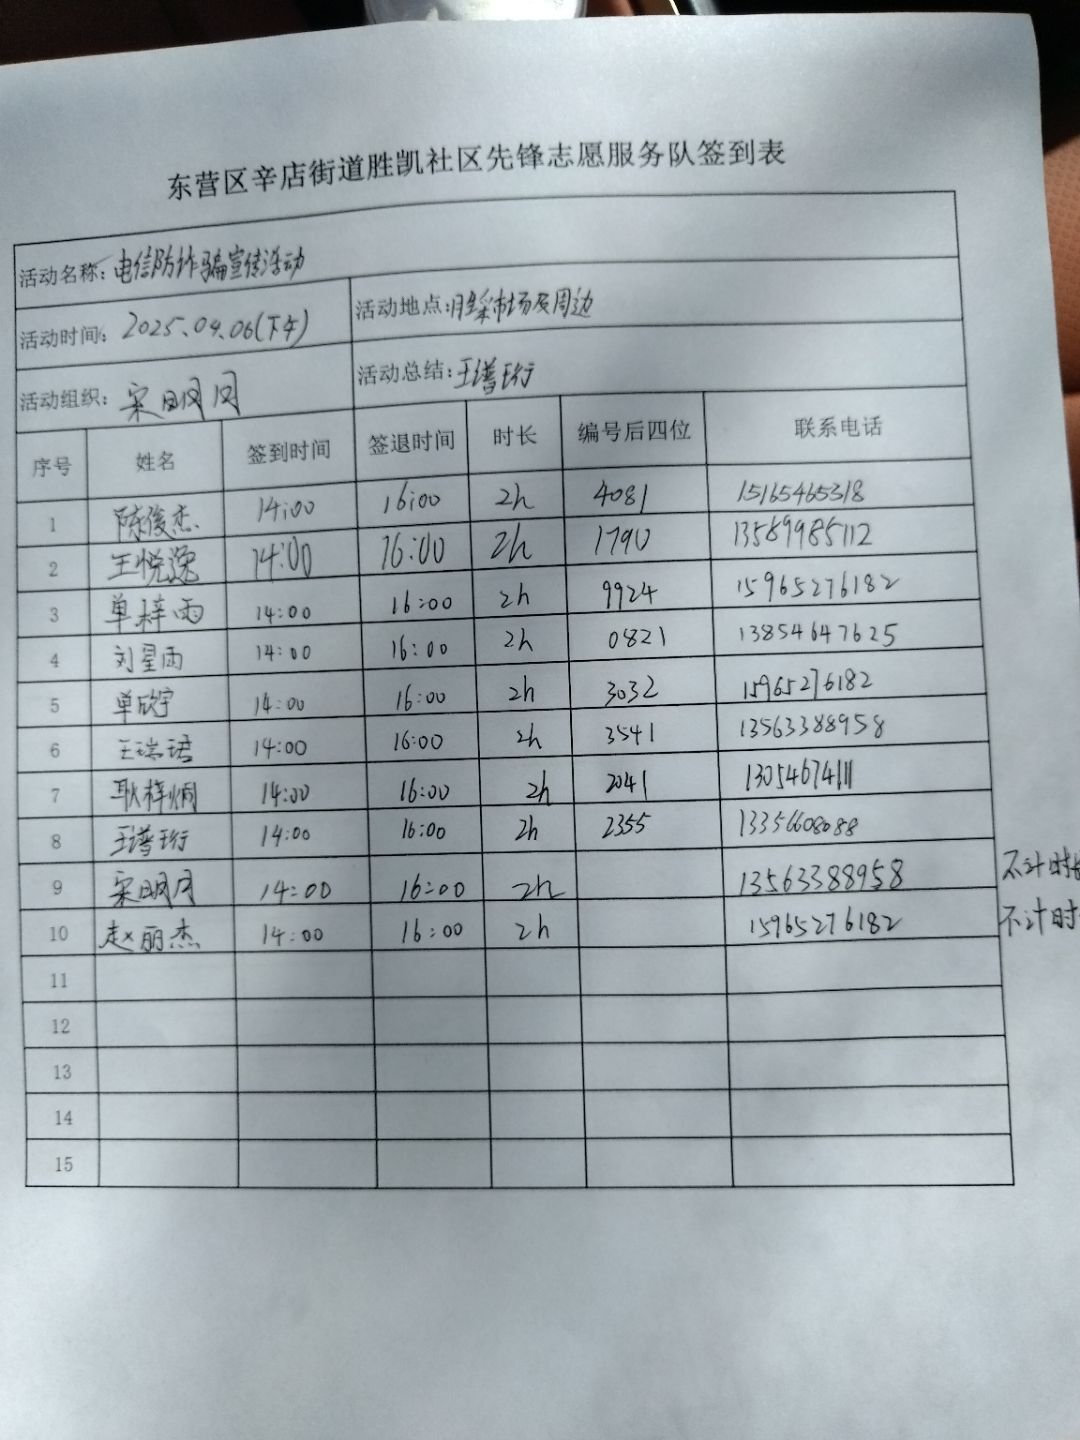 东营区辛店街道胜凯社区先锋志愿服务队签到表
活动名称：电信防诈骗宣传活动
活动时间：2025.04.06(下午) 活动地点：胜采市场及周边
活动组织：宋明月 活动总结：王谱珩
序号 姓名 签到时间 签退时间 时长 编号后四位 联系电话
1 陈俊杰 14:00 16:00 2h 4081 15165465318
2 王悦逸 14:00 16:00 2h 1790 13589985112
3 单梓雨 14:00 16:00 2h 9924 15965276182
4 刘星雨 14:00 16:00 2h 0821 13854647625
5 单欣宇 14:00 16:00 2h 3032 15965276182
6 王瑞珺 14:00 16:00 2h 3541 13563388958
7 耿梓炯 14:00 16:00 2h 2041 13054674111
8 王谱珩 14:00 16:00 2h 2355 13356608088
9 宋明月 14:00 16:00 2h 13563388958 不计时长
10 赵丽杰 14:00 16:00 2h 15965276182 不计时
11
12
13
14
15